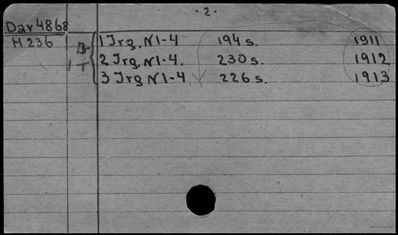 - 2 -
Dav 4868
H 236
1 Jrg. N 1-4 194 s. 1911
2 Jrg. N 1-4. 230 s. 1912
1 T 3 Jrg. N 1-4 226 s. 1913